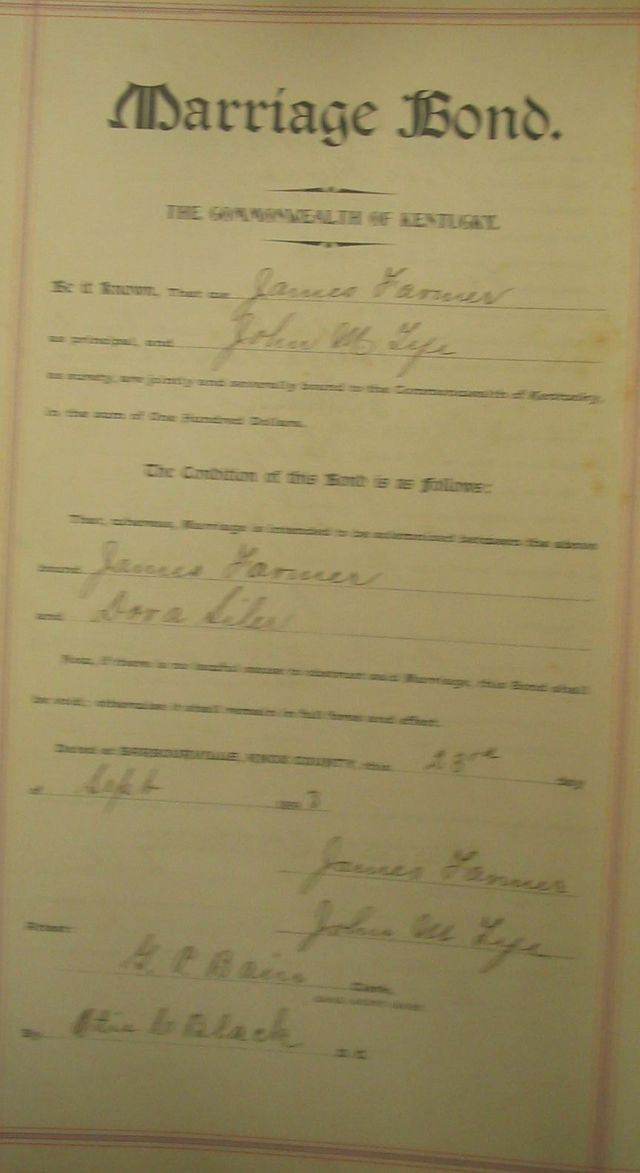 Marriage Bond.
THE COMMONWEALTH OF KENTUCKY.
Be it Known, That we James Farmer
as principal, and John M Tye
as surety, are jointly and severally bound to the Commonwealth of Kentucky,
in the sum of One Hundred Dollars.
The Condition of this Bond is as follows:
That, whereas, Marriage is intended to be solemnized between the above
bound James Farmer
and Dora Siler
Now, if there is no lawful cause to obstruct said Marriage, this Bond shall
be void; otherwise it shall remain in full force and effect.
Dated at BARBOURVILLE, KNOX COUNTY, this 23rd day
of Sept
James Farmer
John M Tye
Attest:
G. P Bain Clerk,
By Otis C Black D. C.